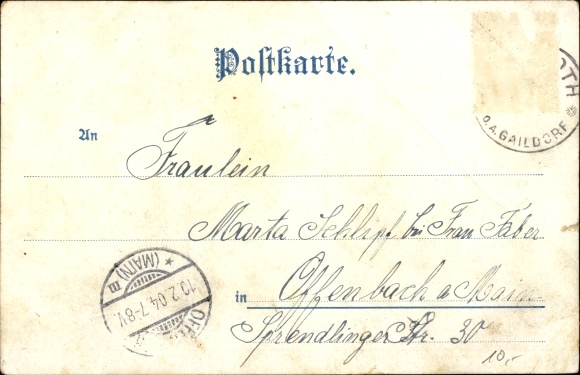 Postkarte.
OTH
O.A. GAILDORF
An
Fräulein
Marta Schlipf bei Frau Faber
in Offenbach a Main
Sprendlinger Str. 30
10,-
OFFE
10.2.04.7-8V.
* (MAIN) *